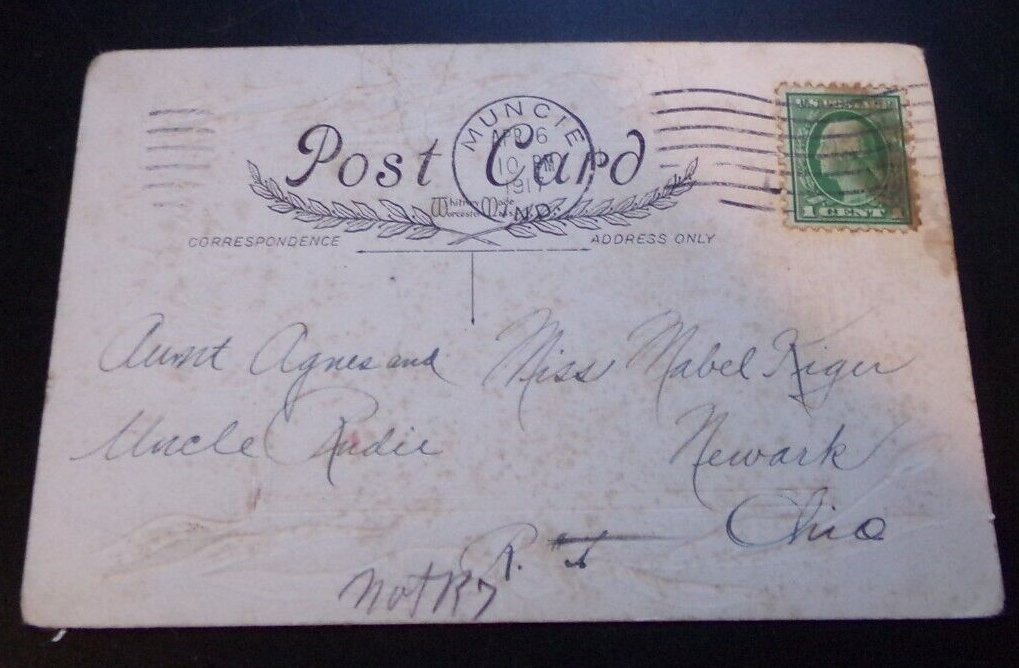 MUNCIE
APR 6
10 PM
191
IND.
U.S. POSTAGE
1 CENT
Post Card
Whitney Made
Worcester Mass
CORRESPONDENCE
ADDRESS ONLY
Aunt Agnes and
Uncle Rudie
Miss Mabel Kiger
Newark
Ohio
R.
Not R7